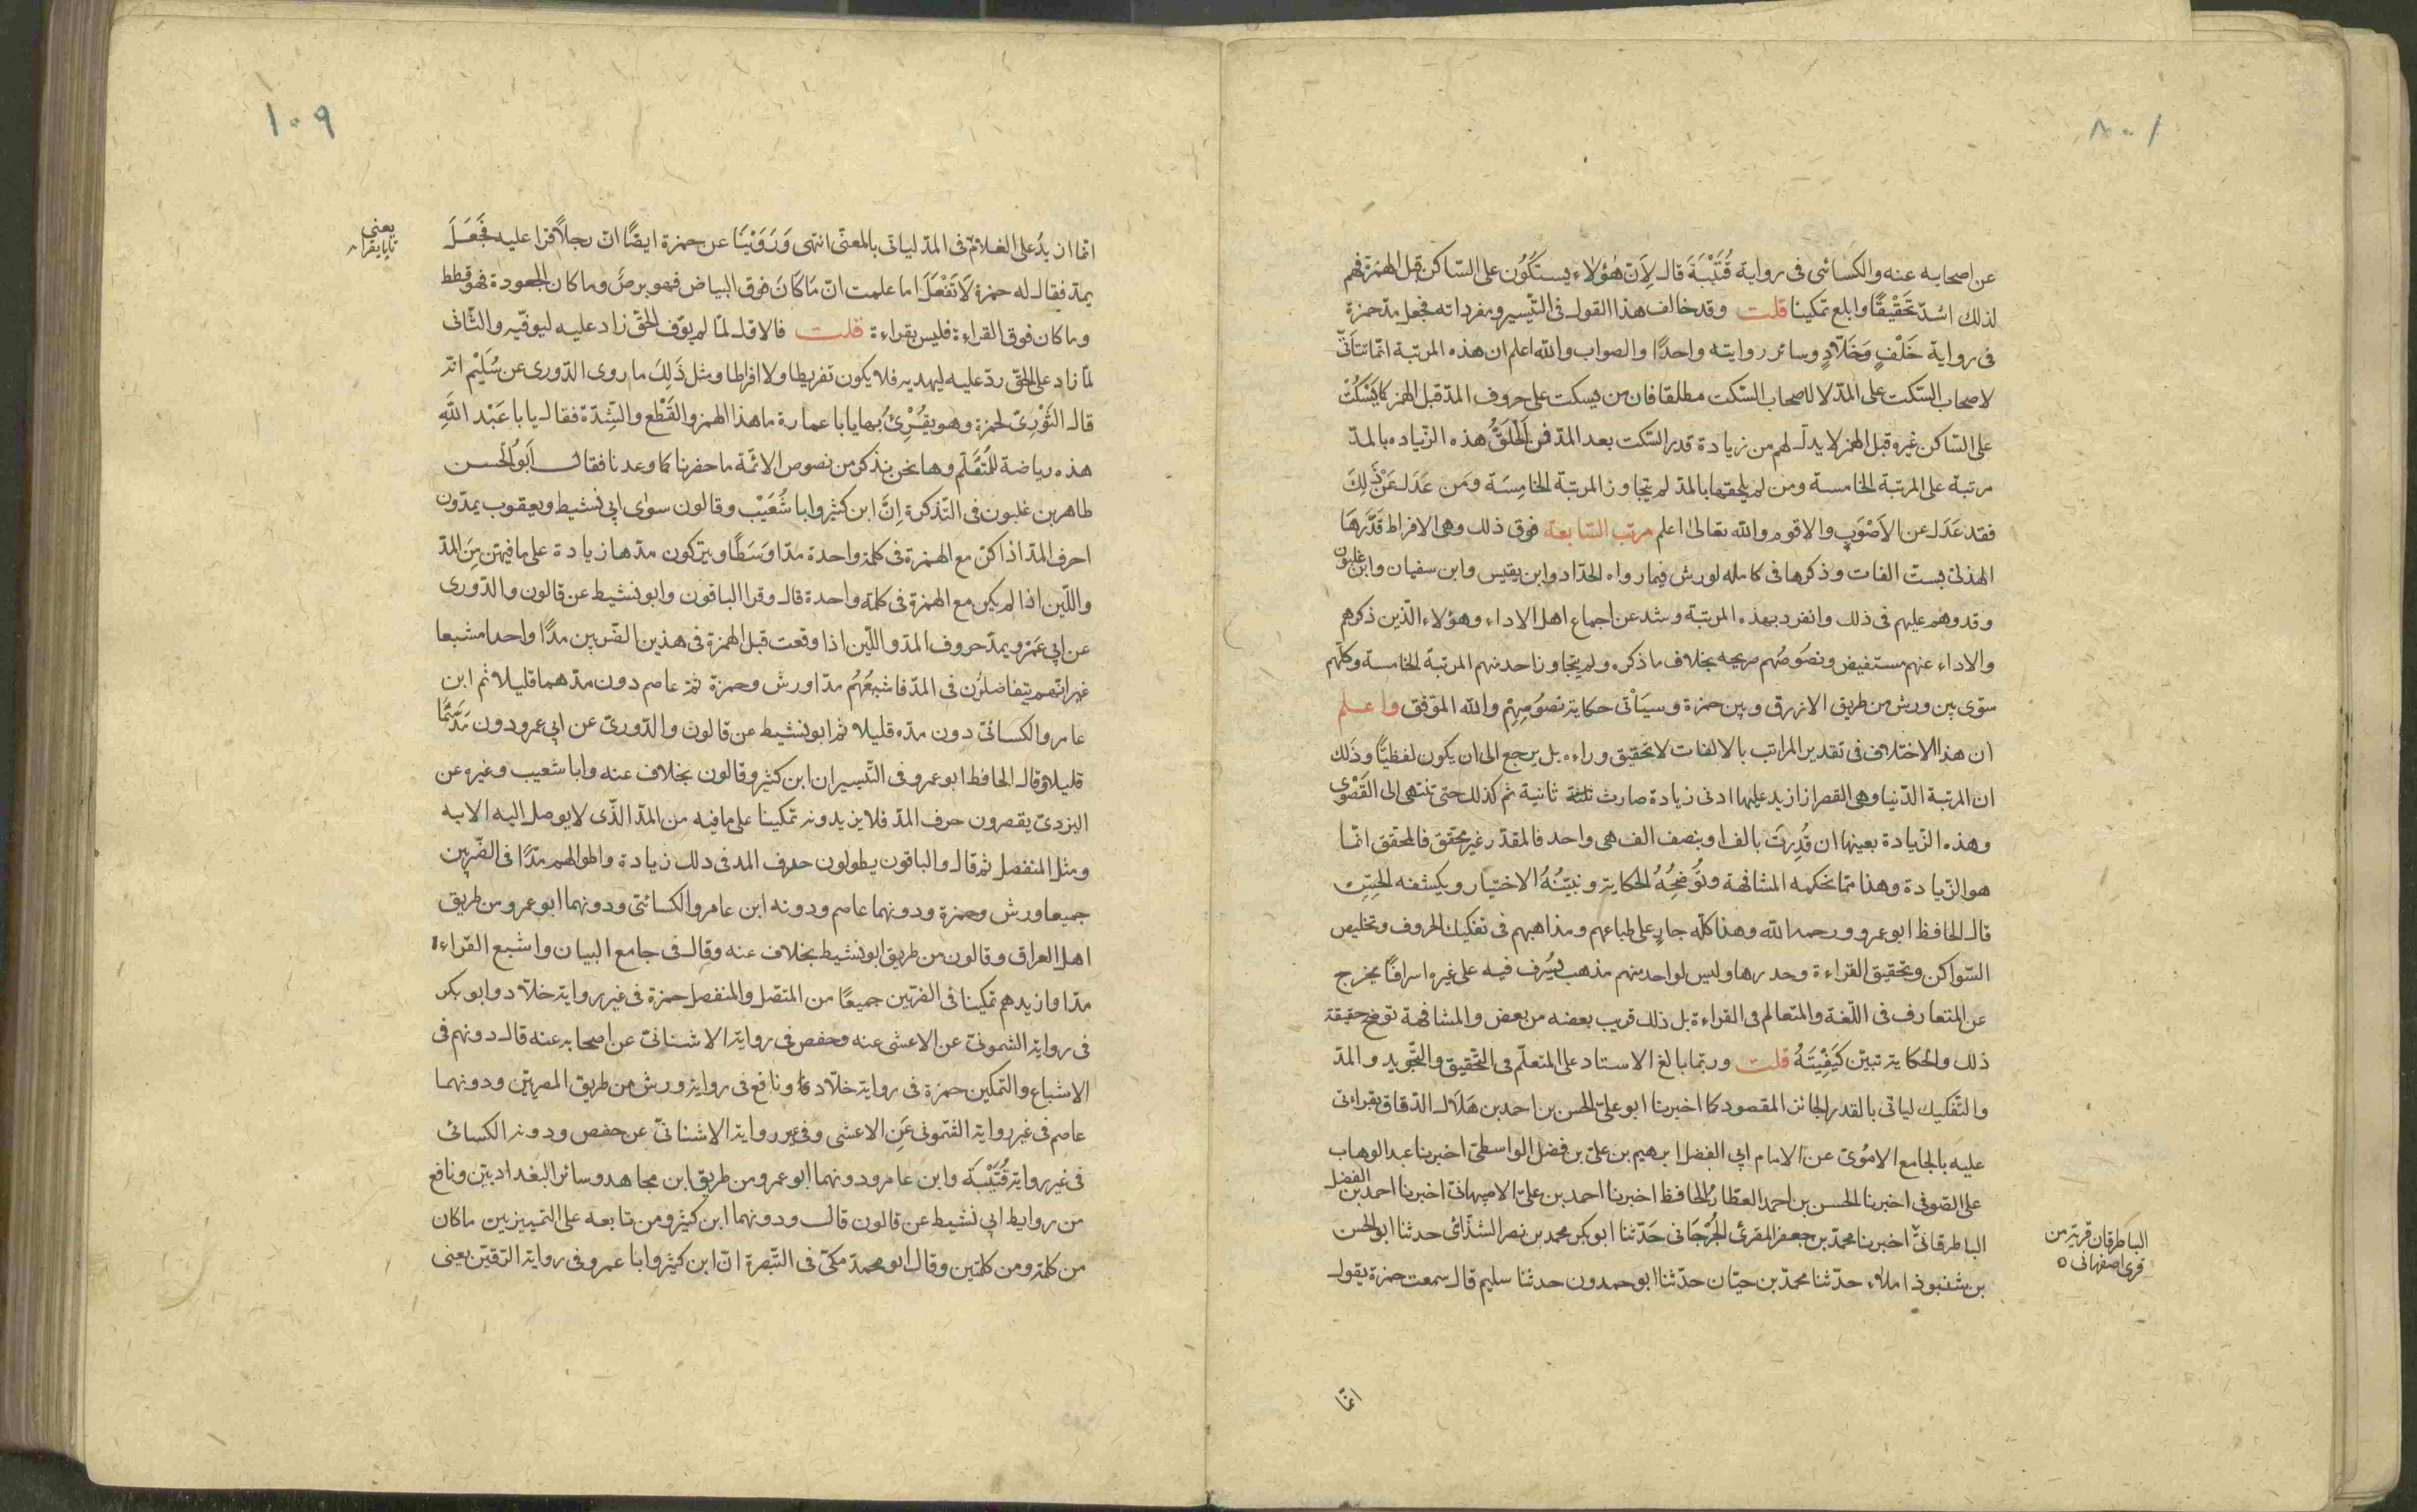 ١٠٨
عن اصحابه عنه والكسائى فى رواية قُتَيْبَةَ قال لِاَنّ هٰؤلاء يسكتُون على السّاكن قبل الهمزة فهم
لذلك اشدّ تحَقْيقًا وابلع تمكينا قلت وقد خالف هذا القول فى التّيسير ومفرداته فجعل مدّ حمزة
فى رواية خَلْفٍ وَخَلّادٍ وسائر روايته واحدًا والصواب والله اعلم ان هذه المرتبة انمّا تتأتّى
لاصحاب السّكت على المدّ لا لاصحاب السّكت مطلقا فان من يسكت على حروف المدّ قبل الهمز كما يَسْكُت
على السّاكن غيره قبل الهمز لا بدلـ لهم من زيادة قدر السّكت بعد المدّ فمن اَلْحَقَ هذه الزّياده بالمدّ
مرتبة على المرتبة الخامسة ومن لم يلحقها بالمدّ لم يتجاوز المرتبة الخامِسَة وَمَن عَدَلَ عَنْ ذَلِكَ
فقد عَدَلَ عن الاَصْوَبِ والاقوم والله تعالىٰ اعلم مرتب السّابعة فوق ذلك وهى الافراط قَدَّرَهَا
الهذلىّ بستّ الفات وذكرها فى كامله لورش فيما رواه الحدّاد وابن نفيس وابن سفيان وابن غلبون
وقد وهم عليهم فى ذلك وانفرد بهذه المرتبة وشذ عن اجماع اهل الاداء وهؤلاء الّذين ذكرهم
والاداء عنهم مستفيض ونصُوصُهم صريحه بخلاف ما ذكره ولم يتجاوز احد منهم المرتبة الخامسة وكلّهم
سَوّى بين ورش من طريق الازرق وبين حمزة وسيَاْتى حكاية نصُوصِهِم والله الموّفق واعلم
ان هذا الاختلاف فى تقدير المراتب بالالفات لا تحقيق وراءه بل يرجع الى ان يكون لفظيّا وذَلك
ان المرتبة الدّنيا وهى القصر اذا زيد عليها ادنى زيادة صارت ثانية ثم كذلك حتى تنتهى الى القَصْوى
وهذه الزّيادة بعينها ان قُدِرتَ بالف او بنصف الف هى واحد فالمقدّر غير محقق فالمحقق انمّا
هو الزّيادة وهذا ممّا تحكمه المشافهة وتُوَضِحُهُ الحكاية وتبيّنُهُ الاختيار ويكشفه الحِسّ
قال الحافظ ابو عمرو رحمه الله وهذا كلّه جارٍ على طباعهم ومذاهبهم فى تفكيك الحروف وتخليص
السّواكن وتحقيق القراءة وحدرها وليس لواحد منهم مذهب يسُرف فيه على غيره اسرافًا يخرج
عن المتعارف فى اللّغة والمتعالم فى القراءة بل ذلك قريب بعضه من بعض والمشافهة توضح حقيقة
ذلك والحكاية تبيّن كَيَفِيْتَهُ قلت وربّما بالغ الاستاد على المتعلّم فى التّحقيق والتّجويد والمدّ
والتّفكيك لياتى بالقدر الجائز المقصود كما اخبرنا ابو علىّ الحسن بن احمد بن هَلَال الدّقاق بقراءتى
عليه بالجامع الامُوىّ عن الامام ابى الفضل ابرهيم بن علىّ بن فضل الواسطىّ اخبرنا عبد الوهاب
على الصّوفى اخبرنا الحسن بن احمد العطّار الحافظ اخبرنا احمد بن علىّ الاصبهانىّ اخبرنا احمد بن الفضل
الباطرقانىّ اخبرنا محمّد بن جعفر المقرئ الجُرْجَانى حَدّثنا ابو بكر محمد بن نصر الشذّائى حدثنا ابو الحسن
بن شنبوذ املاء حدّثنا محمّد بن حيّان حدّثنا ابو حمدون حدثنا سليم قال سمعت حمزة يقول
الباطرقان قرية من
قرى اصفهانى
انمّا
١٠٩
انمّا ازيدُ على الغلام فى المدّ لياتى بالمعنّى انتهى وَرَوَيْنَا عن حمزة ايضًا انّ رجلاً قرا عليه فجَعَلَ
يمدّ فقال له حمزة لَا تَفْعَلَ اما علمت انّ مَا كَانَ فوق البياض فهو برصُ وما كان الجعودة فهو قطط
وما كان فوق القراءة فليس بقراءة قلت فالاوّل لمّا لم يوّف الحقّ زاد عليه ليوفّيه والثّانى
لمّا زاد على الحقّ ردّ عليه ليهديه فلا يكون تفريطا ولا افراطا ومثل ذَلِكَ ما روى الدّورى عن سُلَيْم انّه
قال الثَوْرِىّ لحمزة وهو يقُرِْئُ بها يابا عمارة ما هذا الهمز والقَطْع والشِدّة فقال يابا عَبْد اللهِ
هذه رياضة للُمتعَّلم وها نحن نذكر من نصوص الائمّة ما حضرنا كما وعدنا فقال اَبُو الحسن
طاهر بن غلبون فى التّذكرة اِنَّ ابن كثير وابا شُعَيْب وقالون سوٰى ابى نشيط ويعقوب يمدّون
احرف المدّ اذا كنّ مع الهمزة فى كلمة واحدة مدّا وَسَطًا ويتركون مدّها زيادة على ما فيهنّ مِنَ المدّ
واللّين اذا لم يكن مع الهمزة فى كلمة واحدة قال وقرا الباقون وابو نشيط عن قالون والدّورى
عن ابى عَمْرو بمدّ حروف المدّ واللّين اذا وقعت قبل الهمزة فى هذين الضّربين مدًّا واحدا مشبعا
غير انّهم يتفاضلوُن فى المدّ فاشبعُهُم مدّا ورش وحمزة ثمّ عاصم دون مدّهما قليلا ثم ابن
عامر والكسائىّ دون مدّه قليلا ثم ابو نشيط عن قالون والدّورىّ عن ابى عمرو دون مَدّهُمَا
قليلا وقال الحافظ ابو عمرو فى التّيسير ان ابن كثير وقالون بخلاف عنه وابا شعيب وغيره عن
اليزدىّ يقصرون حرف المدّ فلا يزيدونه تمكينا على ما فيه من المدّ الذّى لا يوصل اليه الا به
ومثل المنفصل ثم قال والباقون يطولون حرف المد فى ذلك زيادة واطولهم مدّا فى الضّربين
جميعا ورش وحمزة ودونهما عاصم ودونه ابن عامر والكسائىّ ودونهما ابو عمرو من طريق
اهل العراق وقالون من طريق ابو نشيط بخلاف عنه وقال فى جامع البيان واشبع القراء
مدّا وازيدهم تمكينا فى الضربين جميعًا من المتّصل والمنفصل حمزة فى غير رواية خلّاد وابو بكر
فى رواية الشمونىّ عن الاعشى عنه وحفص فى رواية الاشنانىّ عن اصحابه عنه قال دونهم فى
الاشباع والتّمكين حمزة فى رواية خلّاد ونافع فى رواية ورش من طريق المصريّين ودونهما
عاصم فى غير رواية الشمونى عَنِ الاعشى وفى غير رواية الاشنانىّ عن حفص ودونه الكسائى
فى غير رواية قُتَيْبَة وابن عامر ودونهما ابو عمرو من طريق ابن مجاهد وسائر البغداديّين ونافع
من روايط ابى نشيط عن قالون قال ودونهما ابن كثير ومن تابعه على التمييز بين ما كان
من كلمة ومن كلمتين وقال ابو محمد مكىّ فى التّبصرة انّ ابن كثير وابا عمرو فى رواية الرّقيّن يعنى
يعنى